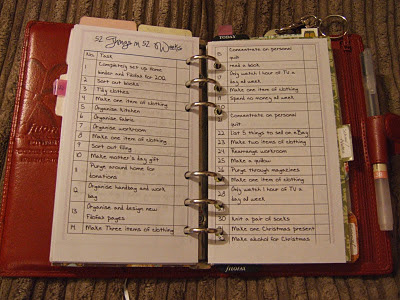 52 Things in 52 Weeks
No. Task
1 Completely set up Home
binder and Filofax for 2012
2 Sort out books
3 Tidy clothes
4 Make one item of clothing
5 Organise kitchen
6 Organise fabric
7 Organise workroom
8 Make one item of clothing
9 Sort out filing
10 Make mother's day gift
11 Purge around home for
donations
12 Organise handbag and work
bag
13 Organise and design new
Filofax pages
14 Make Three items of clothing
TODAY
15 Concentrate on personal
quilt
read a book
17 Only watch 1 hour of TV a
day all week
Make one item of clothing
Spend no money all week
Concentrate on personal
quilt
22 List 5 things to sell on eBay
23 Make two items of clothing
24 Rearrange workroom
25 Make a quillow
26 Purge through magazines
Make one item of clothing
28 Only watch 1 hour of TV a
day all week
30 knit a pair of socks
Make one Christmas present
Make alcohol for Christmas